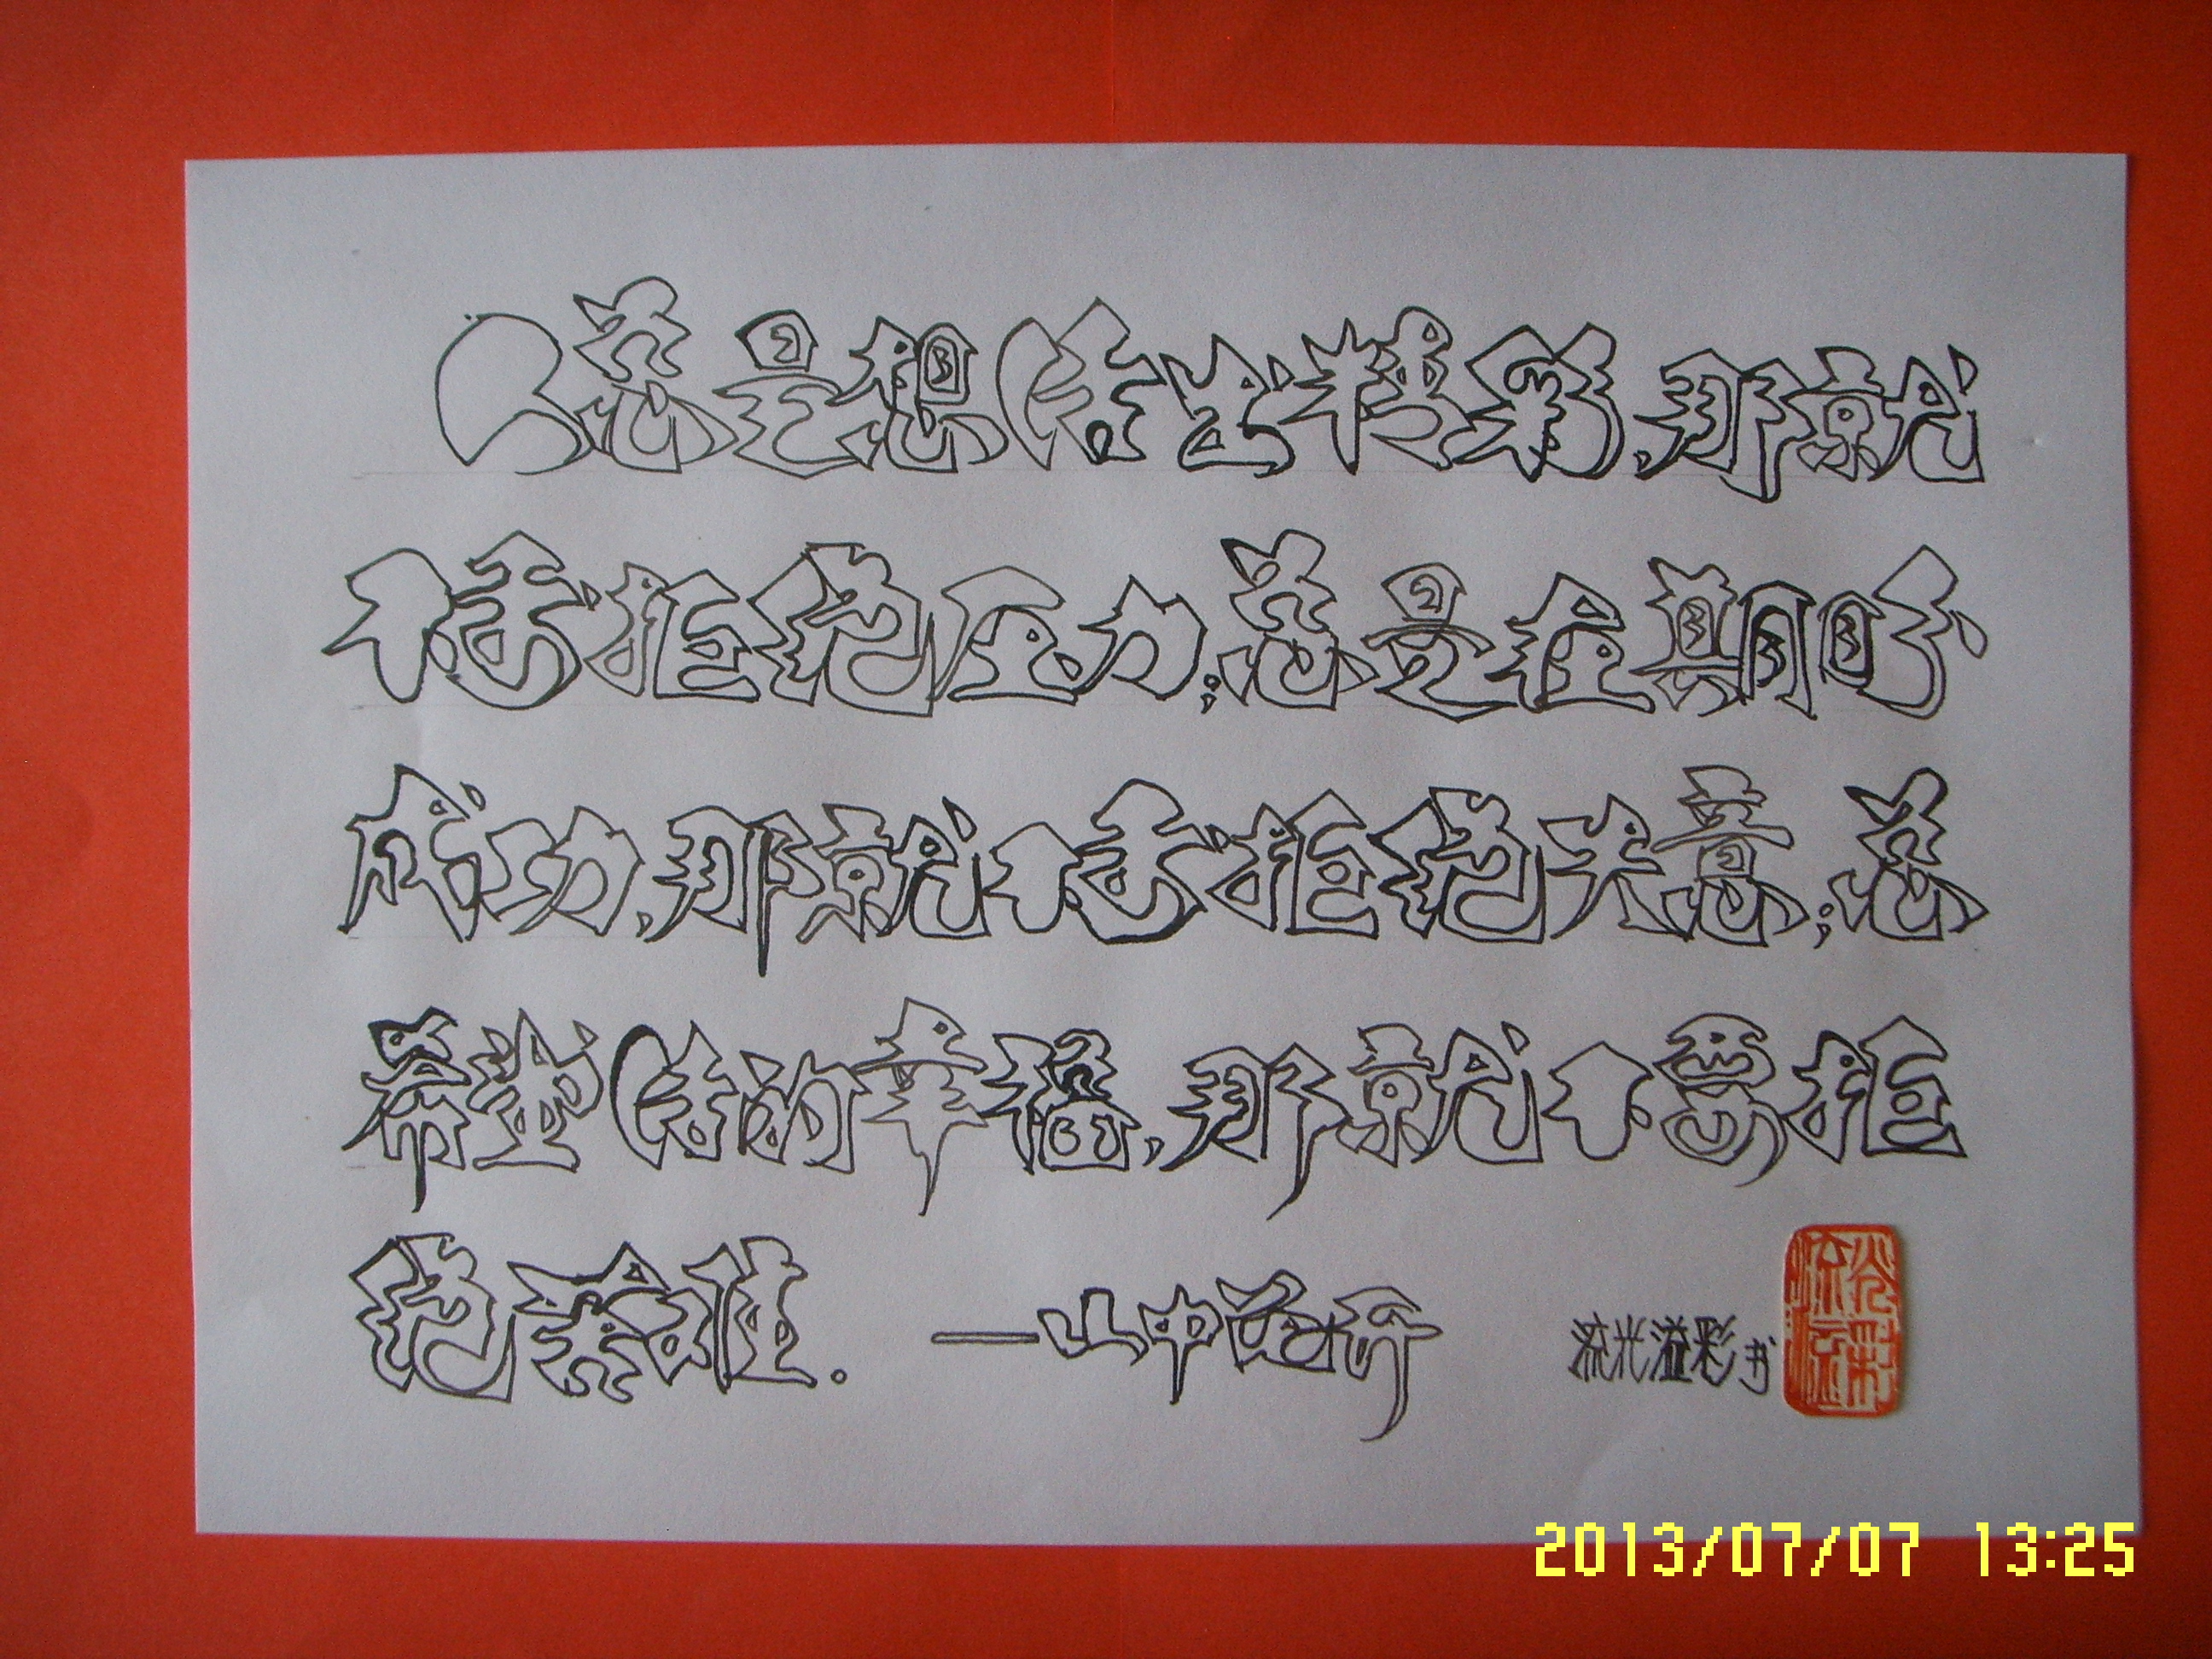 人总是想活出精彩,那就
不去拒绝压力;总是在期盼
成功,那就不去拒绝失意;总
希望活的幸福,那就不要拒
绝
—山中
流光溢彩书
2013/07/07 13:25